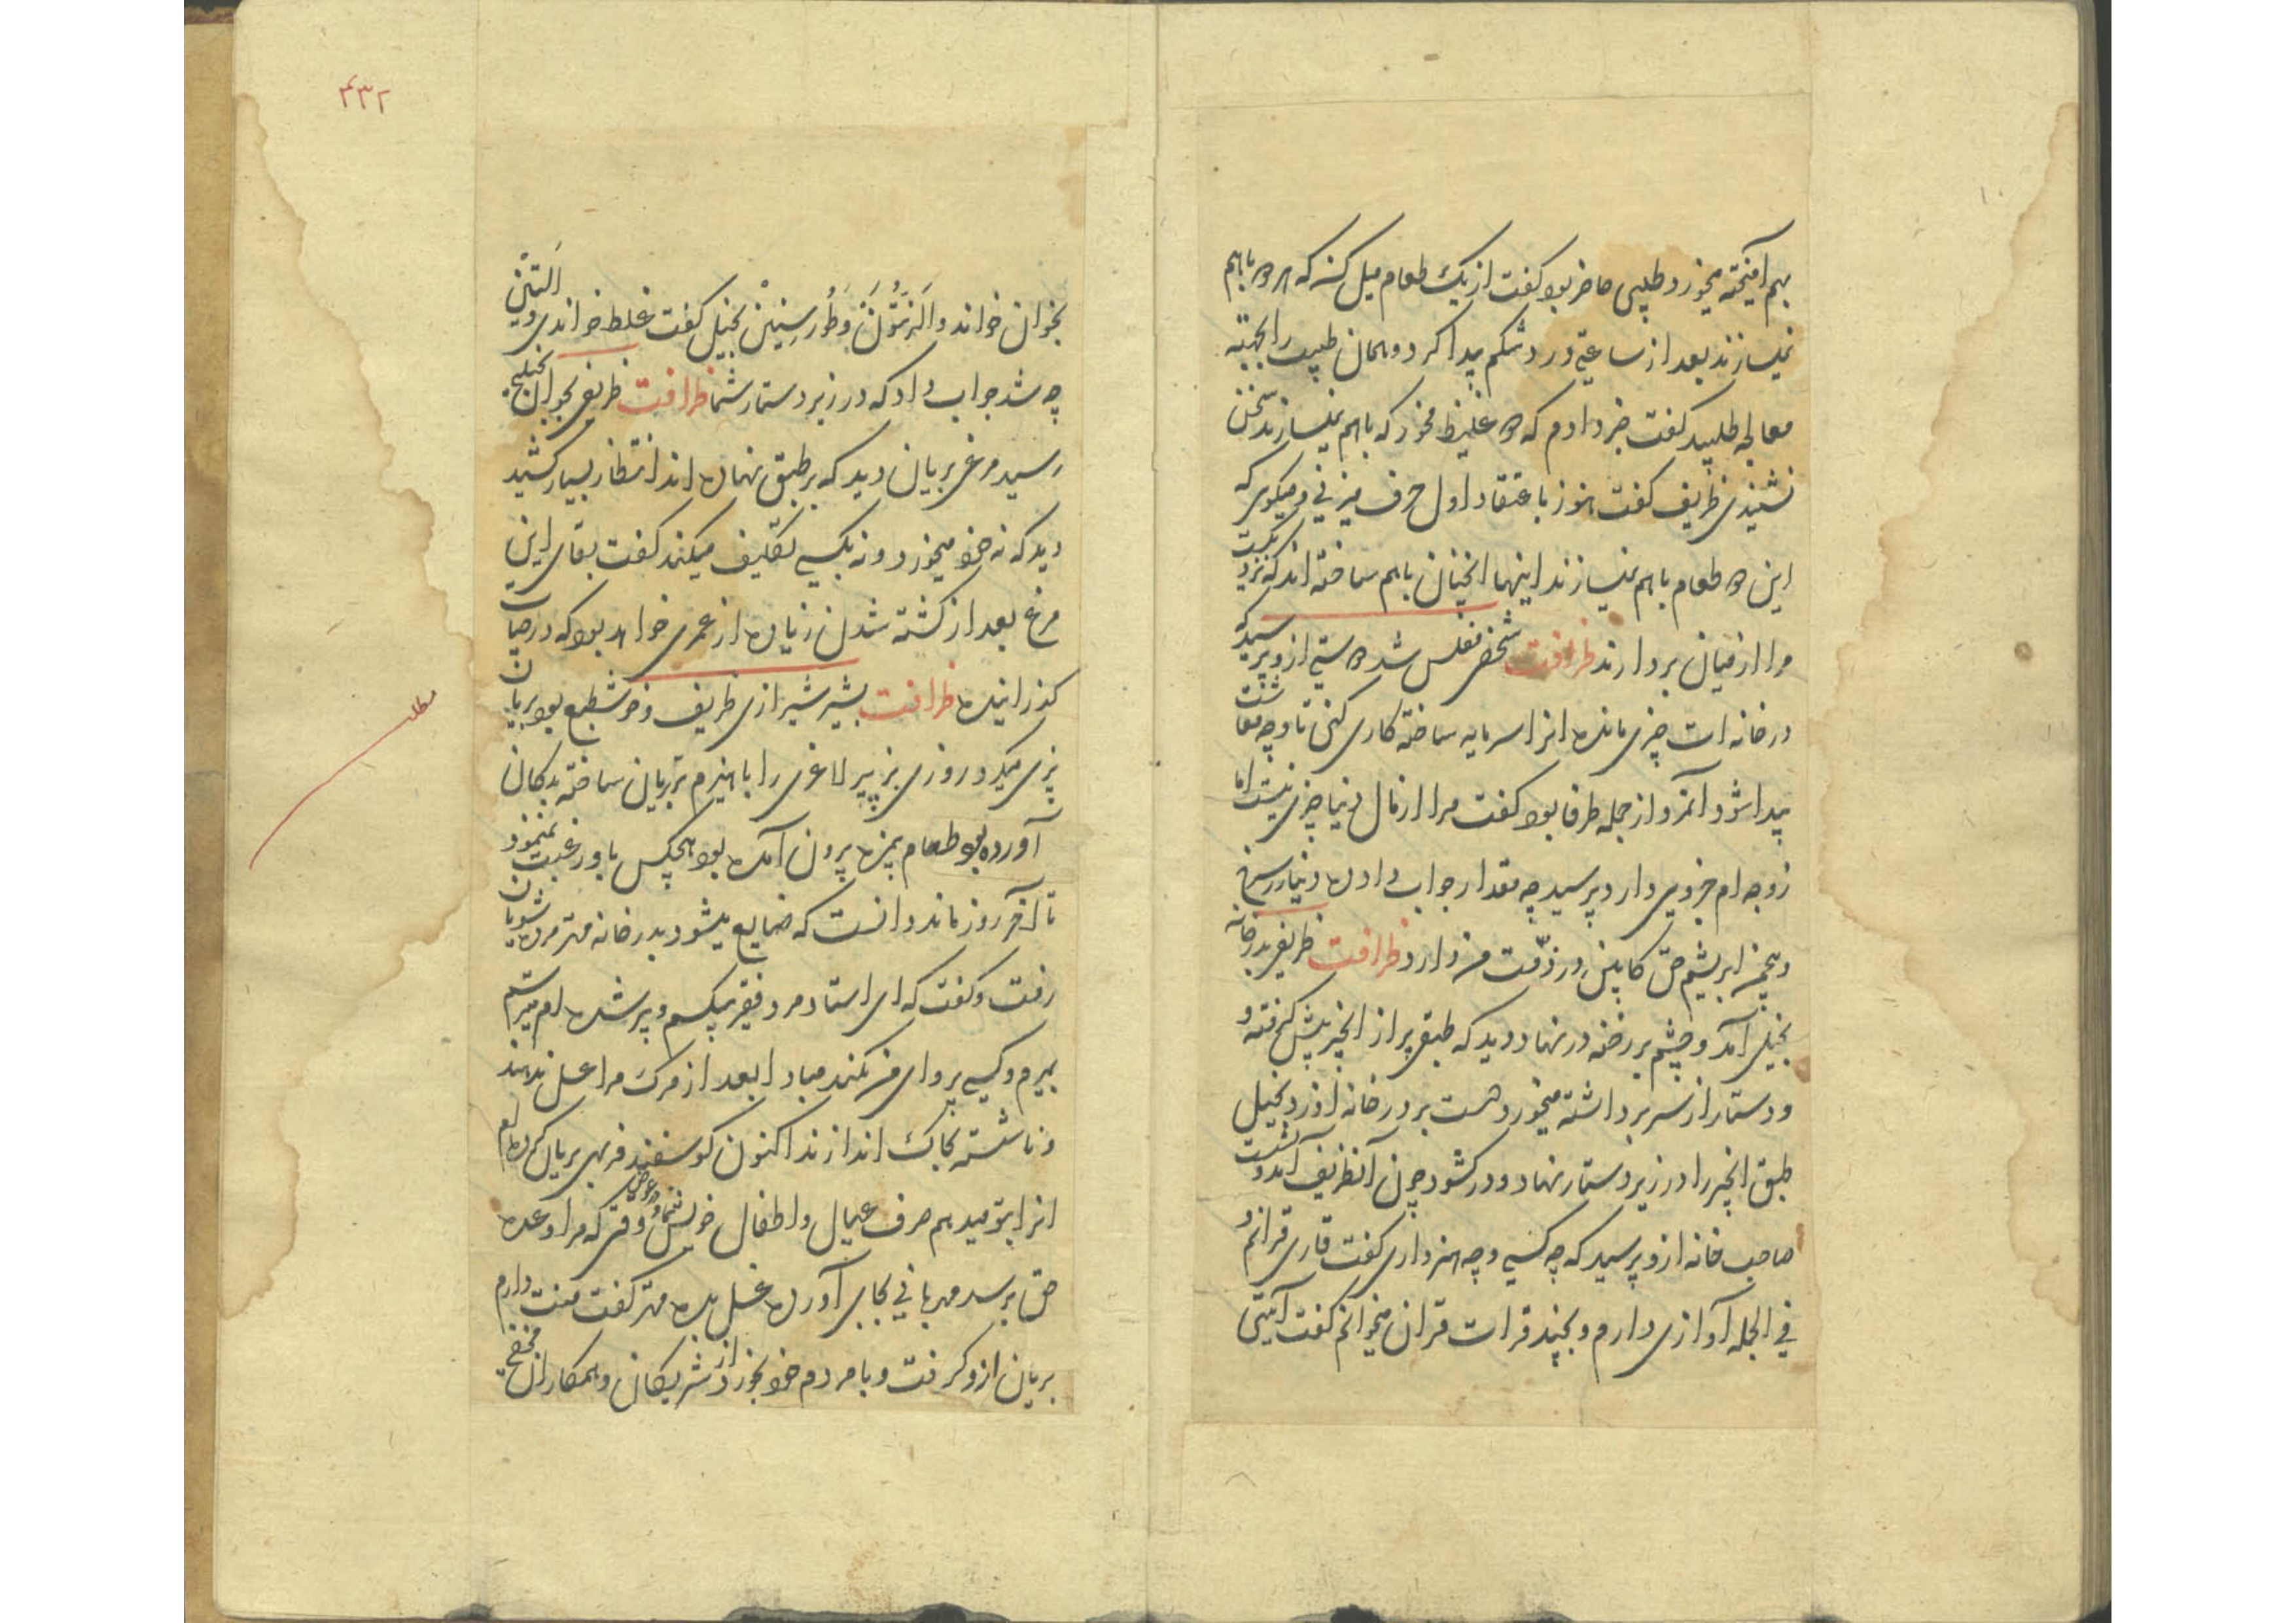 بهم آمیخته میخورد طبیبی حاضر بود گفت از یک طعام میل کنید که هر دو باهم
نمیسازند بعد از ساعتی درد شکم پیدا کرد و همان طبیب را بجهته
معالجه طلبید گفت خبر دادم که دو غلیظ مخور که باهم نمیسازند سخن
نشنیدی ظریف گفت هنوز باعتقاد اول حرف میزنی و میگوی که
این دو طعام باهم نمیسازند اینها انچنان باهم ساخته اند که نزدیکست
مرا از میان بردارند ظرافت شخصی مفلس شد دوستی ازو پرسید که
در خانه ات چیزی مانده انرا سرمایه ساخته کاری کنی تا وجه معاشت
پیدا شود آنمرد از جمله ظرفا بود گفت مرا از مال دنیا چیزی نیست اما
زوجه ام جزوی دارد پرسید چه مقدار جواب داد ده دینار زر سرخ
و پنج من ابریشم حق کابین در ذمّت من دارد ظرافت ظریفی بدر خانه
بخیلی آمد و چشم بر رخنه در نهاد و دید که طبقی پر از انجیر پیش گرفته و
و دستار از سر برداشته میخورد دست بر در خانه او زد بخیل
طبق انجیر را در زیر دستار نهاد و در گشود چون آنظریف آمد و نشست
صاحب خانه ازو پرسید که چه کسی و چه هنر داری گفت قاری قرانم و
فی الجمله آوازی دارم و بچند قرات قران میخوانم گفت آیتی
۴۳۲
بخوان خواند والزیتون وطور سینین بخیل گفت غلط خواندی والتین
چه شد جواب داد که در زیر دستار شما ظرافت ظریفی بخوان بخیلی
رسید مرغی بریان دید که بر طبق نهاده اند انتظار بسیار کشید
دید که نه خود میخورد و نه بکسی تکلیف میکند گفت بقای این
مرغ بعد از کشته شدن زیاده از عمری خواهد بود که در حیات
گذرانیده ظرافت بشیر شیرازی ظریف و خوش طبع بود بریان
پزی میکرد روزی بز پیر لاغری را با هیزم تر بریان ساخته بدکان
آورده بود طعام بمزه بیرون آمده بود هیچکس باو رغبت نمینمود
تا آخر روز ماند دانست که ضایع میشود بدر خانه مهتر مرده شویان
رفت و گفت که ای استاد مرد فقیر بیکسم و پیر شده ام میترسم
بمیرم و کسی پروای من نکند مبادا بعد از مرک مرا غسل ندهند
و ناشسته بخاک اندازند اکنون گوسفند فربهی بریان کرده ام
انرا بتو میدهم صرف عیال و اطفال خویش نما و در عوض وقتی که مرا وعده
حق برسد مهربانی بجای آورده غسل بده مهتر گفت منت دارم
بریان ازو گرفت و با مردم خود بخورد و از شریکان و همکاران مخفی
مطلب